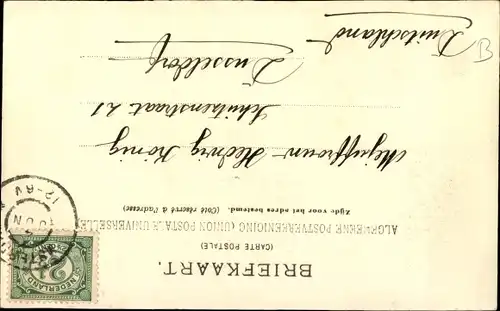 BRIEFKAART.
(CARTE POSTALE)
ALGEMEENE POSTVEREENIGING (UNION POSTALE UNIVERSELLE)
Zijde voor het adres bestemd. (Côté réservé à l'adresse)
Mejuffrouw Hedwig König
Schützenstraat 21
Düsseldorf
Duitschland
NEDERLAND
2½
12-8V
JUN
B